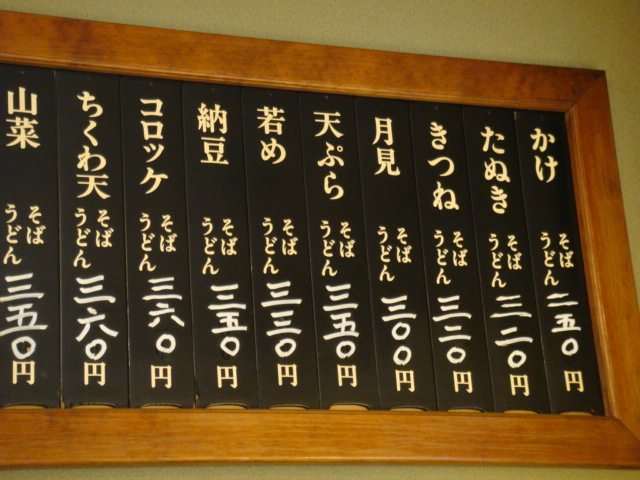 かけ そば うどん 二五〇円
たぬき そば うどん 三二〇円
きつね そば うどん 三二〇円
月見 そば うどん 三〇〇円
天ぷら そば うどん 三五〇円
若め そば うどん 三三〇円
納豆 そば うどん 三五〇円
コロッケ そば うどん 三六〇円
ちくわ天 そば うどん 三六〇円
山菜 そば うどん 三五〇円